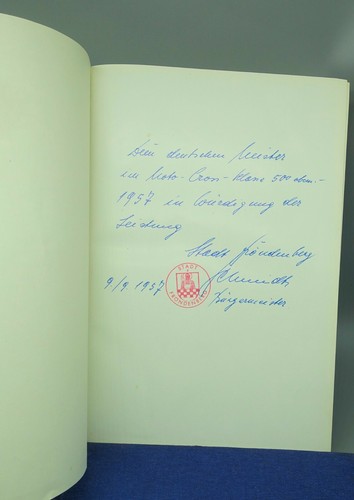 Dem deutschen Meister
im Moto-Cross-Klasse 500 cbm.-
1957 in Würdigung der
Leistung
Stadt Fröndenberg
STADT
FRÖNDENBERG
9/9. 1957 Schmidt
Bürgermeister